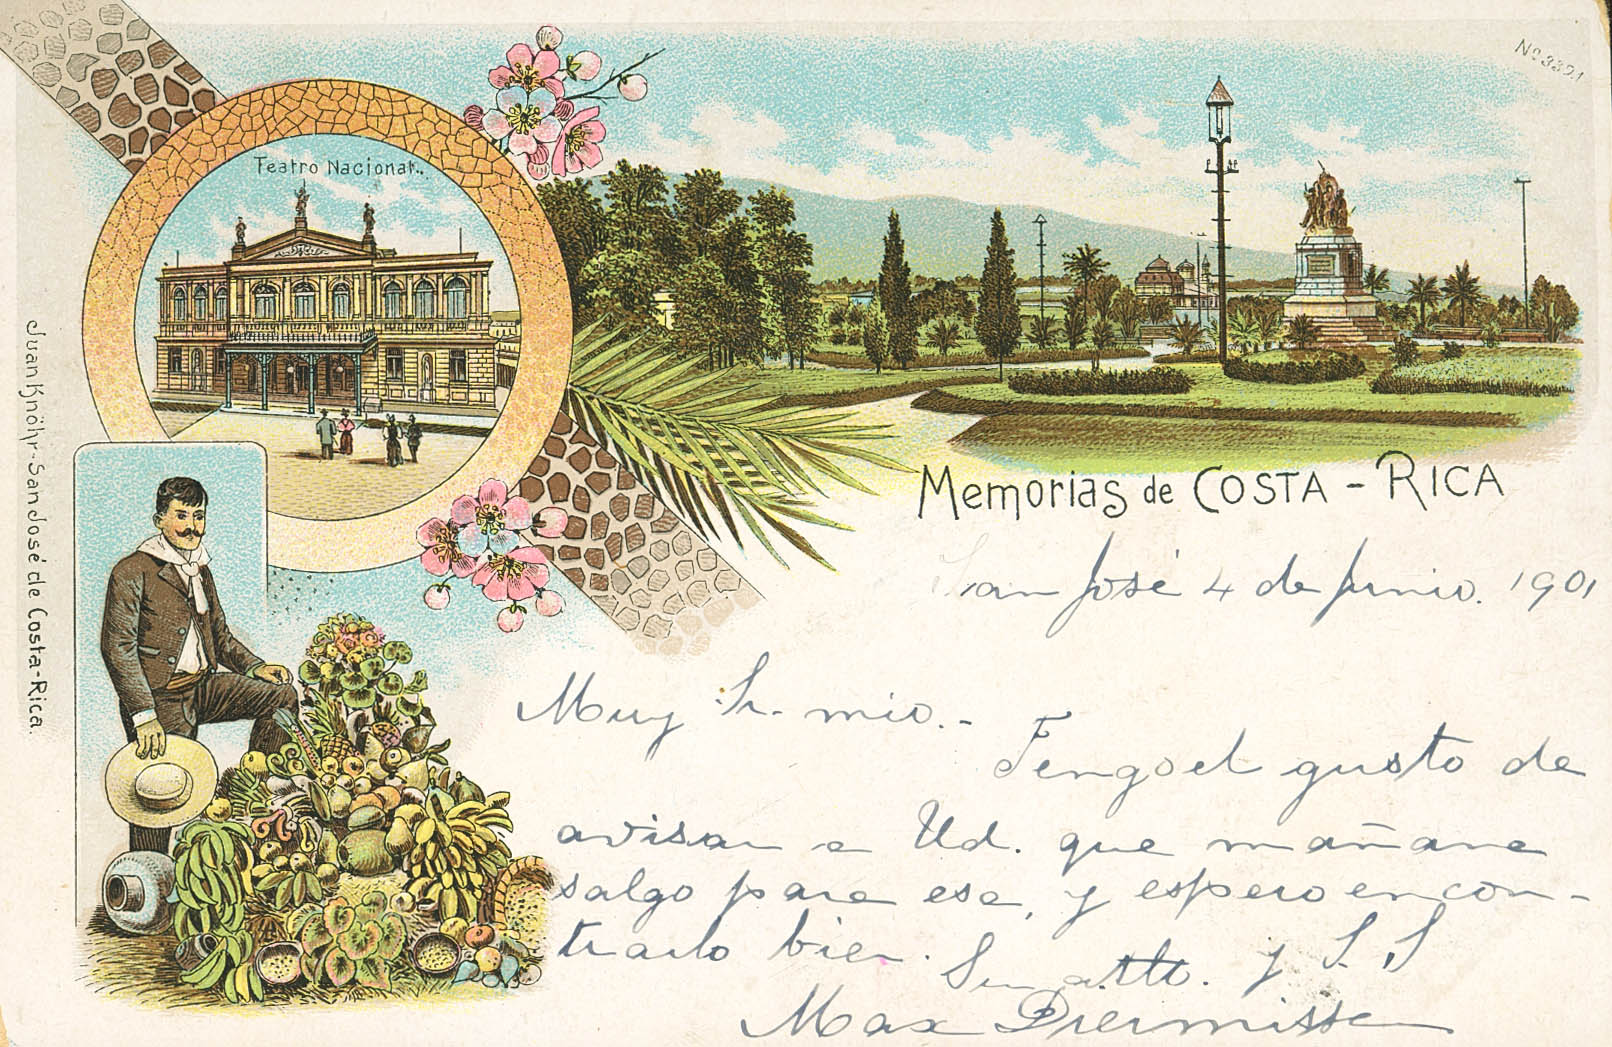 Nº 3321
Teatro Nacional.
Juan Knöhr - San José de Costa-Rica.
Memorias de COSTA-RICA
San José 4 de Junio. 1901
Muy Sr. mio.-
Tengo el gusto de
avisar a Ud. que mañana
salgo para esa, y espero encon-
trarlo bien. Su atto. y S. S
Max